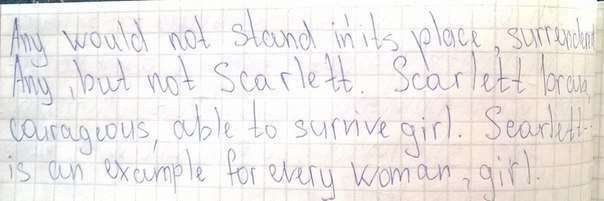 Any would not stand in its place, surrender
Any, but not Scarlett. Scarlett brave,
courageous, able to survive girl. Scarlett-
is an example for every woman, girl.